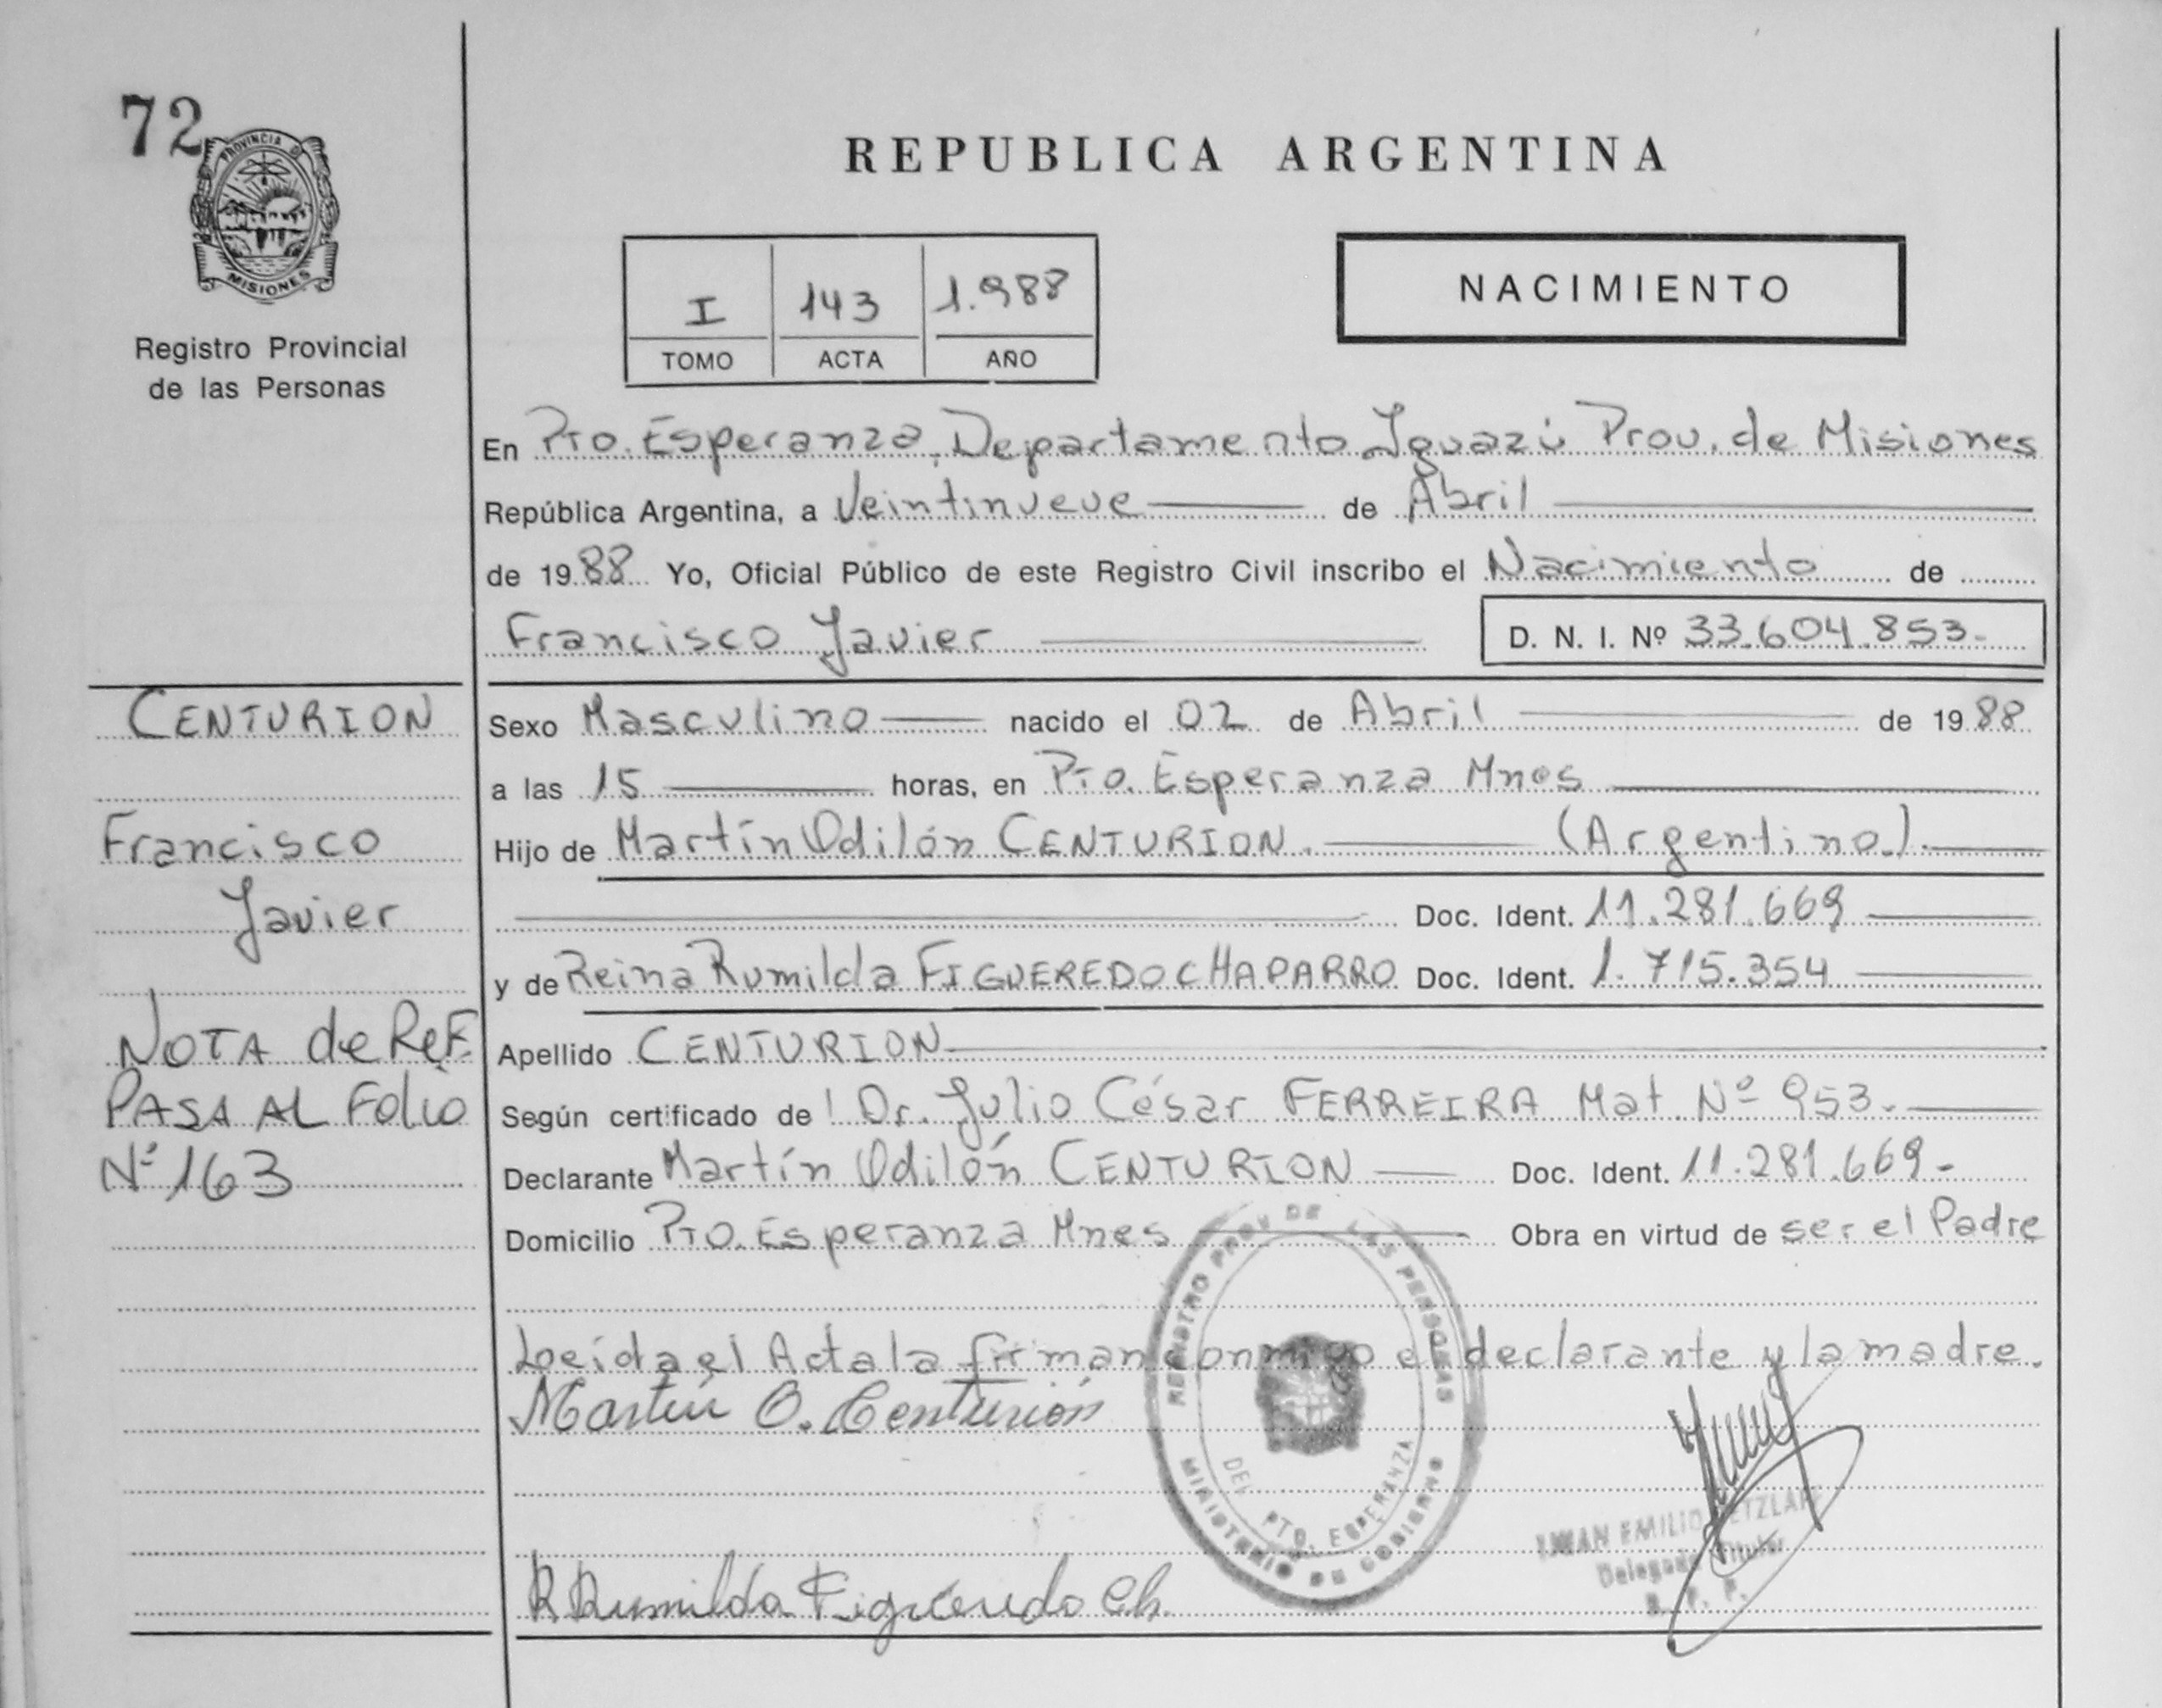 72
PROVINCIA DE
MISIONES
Registro Provincial
de las Personas
REPUBLICA ARGENTINA
I 143 1.988
TOMO ACTA AÑO
NACIMIENTO
En Pto. Esperanza, Departamento Iguazú Prov. de Misiones
República Argentina, a Veintinueve de Abril
de 1988 Yo, Oficial Público de este Registro Civil inscribo el Nacimiento de
Francisco Javier D. N. I. Nº 33.604.853-
CENTURION
Francisco
Javier
NOTA de REF.
PASA AL Folio
Nº 163
Sexo Masculino nacido el 02 de Abril de 1988
a las 15 horas, en Pto. Esperanza Mnes
Hijo de Martín Odilón CENTURION. (Argentino.).
Doc. Ident. 11.281.669
y de Reina Rumilda FIGUEREDO CHAPARRO Doc. Ident. 1.715.354
Apellido CENTURION
Según certificado de Dr. Julio César FERREIRA Mat. Nº 953.
Declarante Martín Odilón CENTURION Doc. Ident. 11.281.669-
Domicilio Pto. Esperanza Mnes Obra en virtud de ser el Padre
Leída el Acta la firman conmigo el declarante y la madre.
Martín O. Centurión
R Rumilda Figueredo Ch.
REGISTRO PROV DE LAS PERSONAS
DEL. PTO. ESPERANZA
MINISTERIO DE GOBIERNO
EMILIO
Delegado Titular
R. P. P.